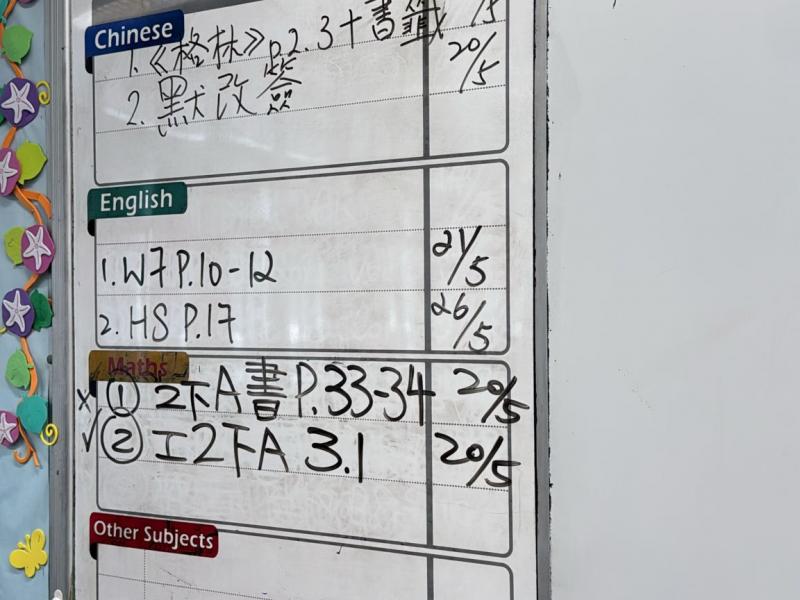 Chinese
1.《格林》P.2.3+書籤 /5
2. 默改簽 20/5
English
1. W7 P.10-12 21/5
2. HS P.17 26/5
Maths
× ① 2下A書 P.33-34 20/5
✓ ② 工2下A 3.1 20/5
Other Subjects